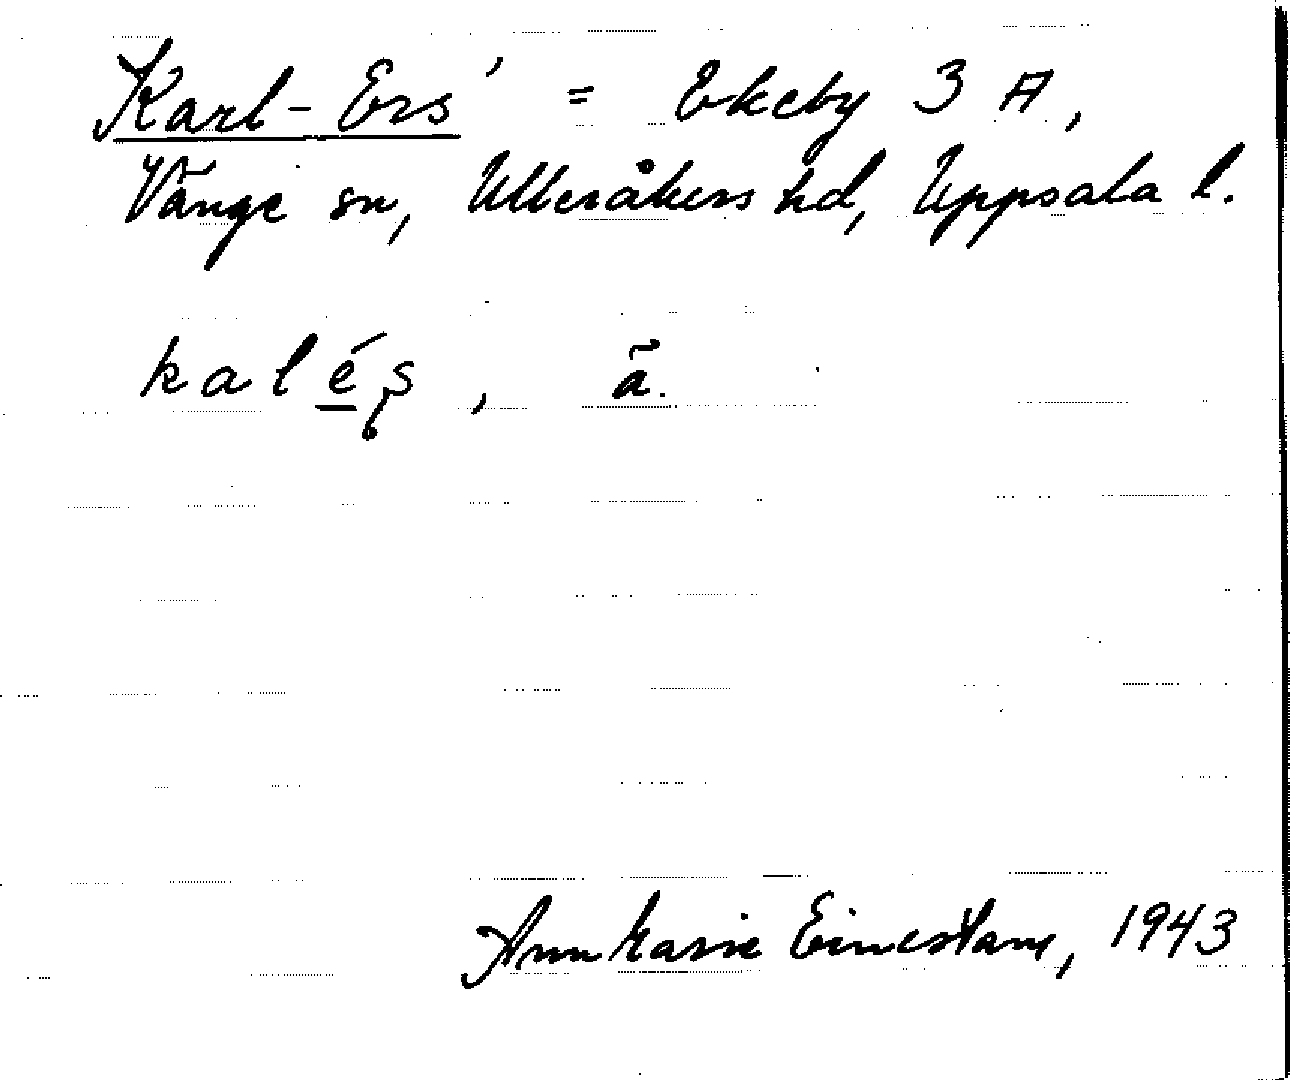 Karl-Ers' = Ekeby 3 A,
Vänge sn, Ulleråkers hd, Uppsala l.
kalés, ã.
Ann Marie Einestam, 1943